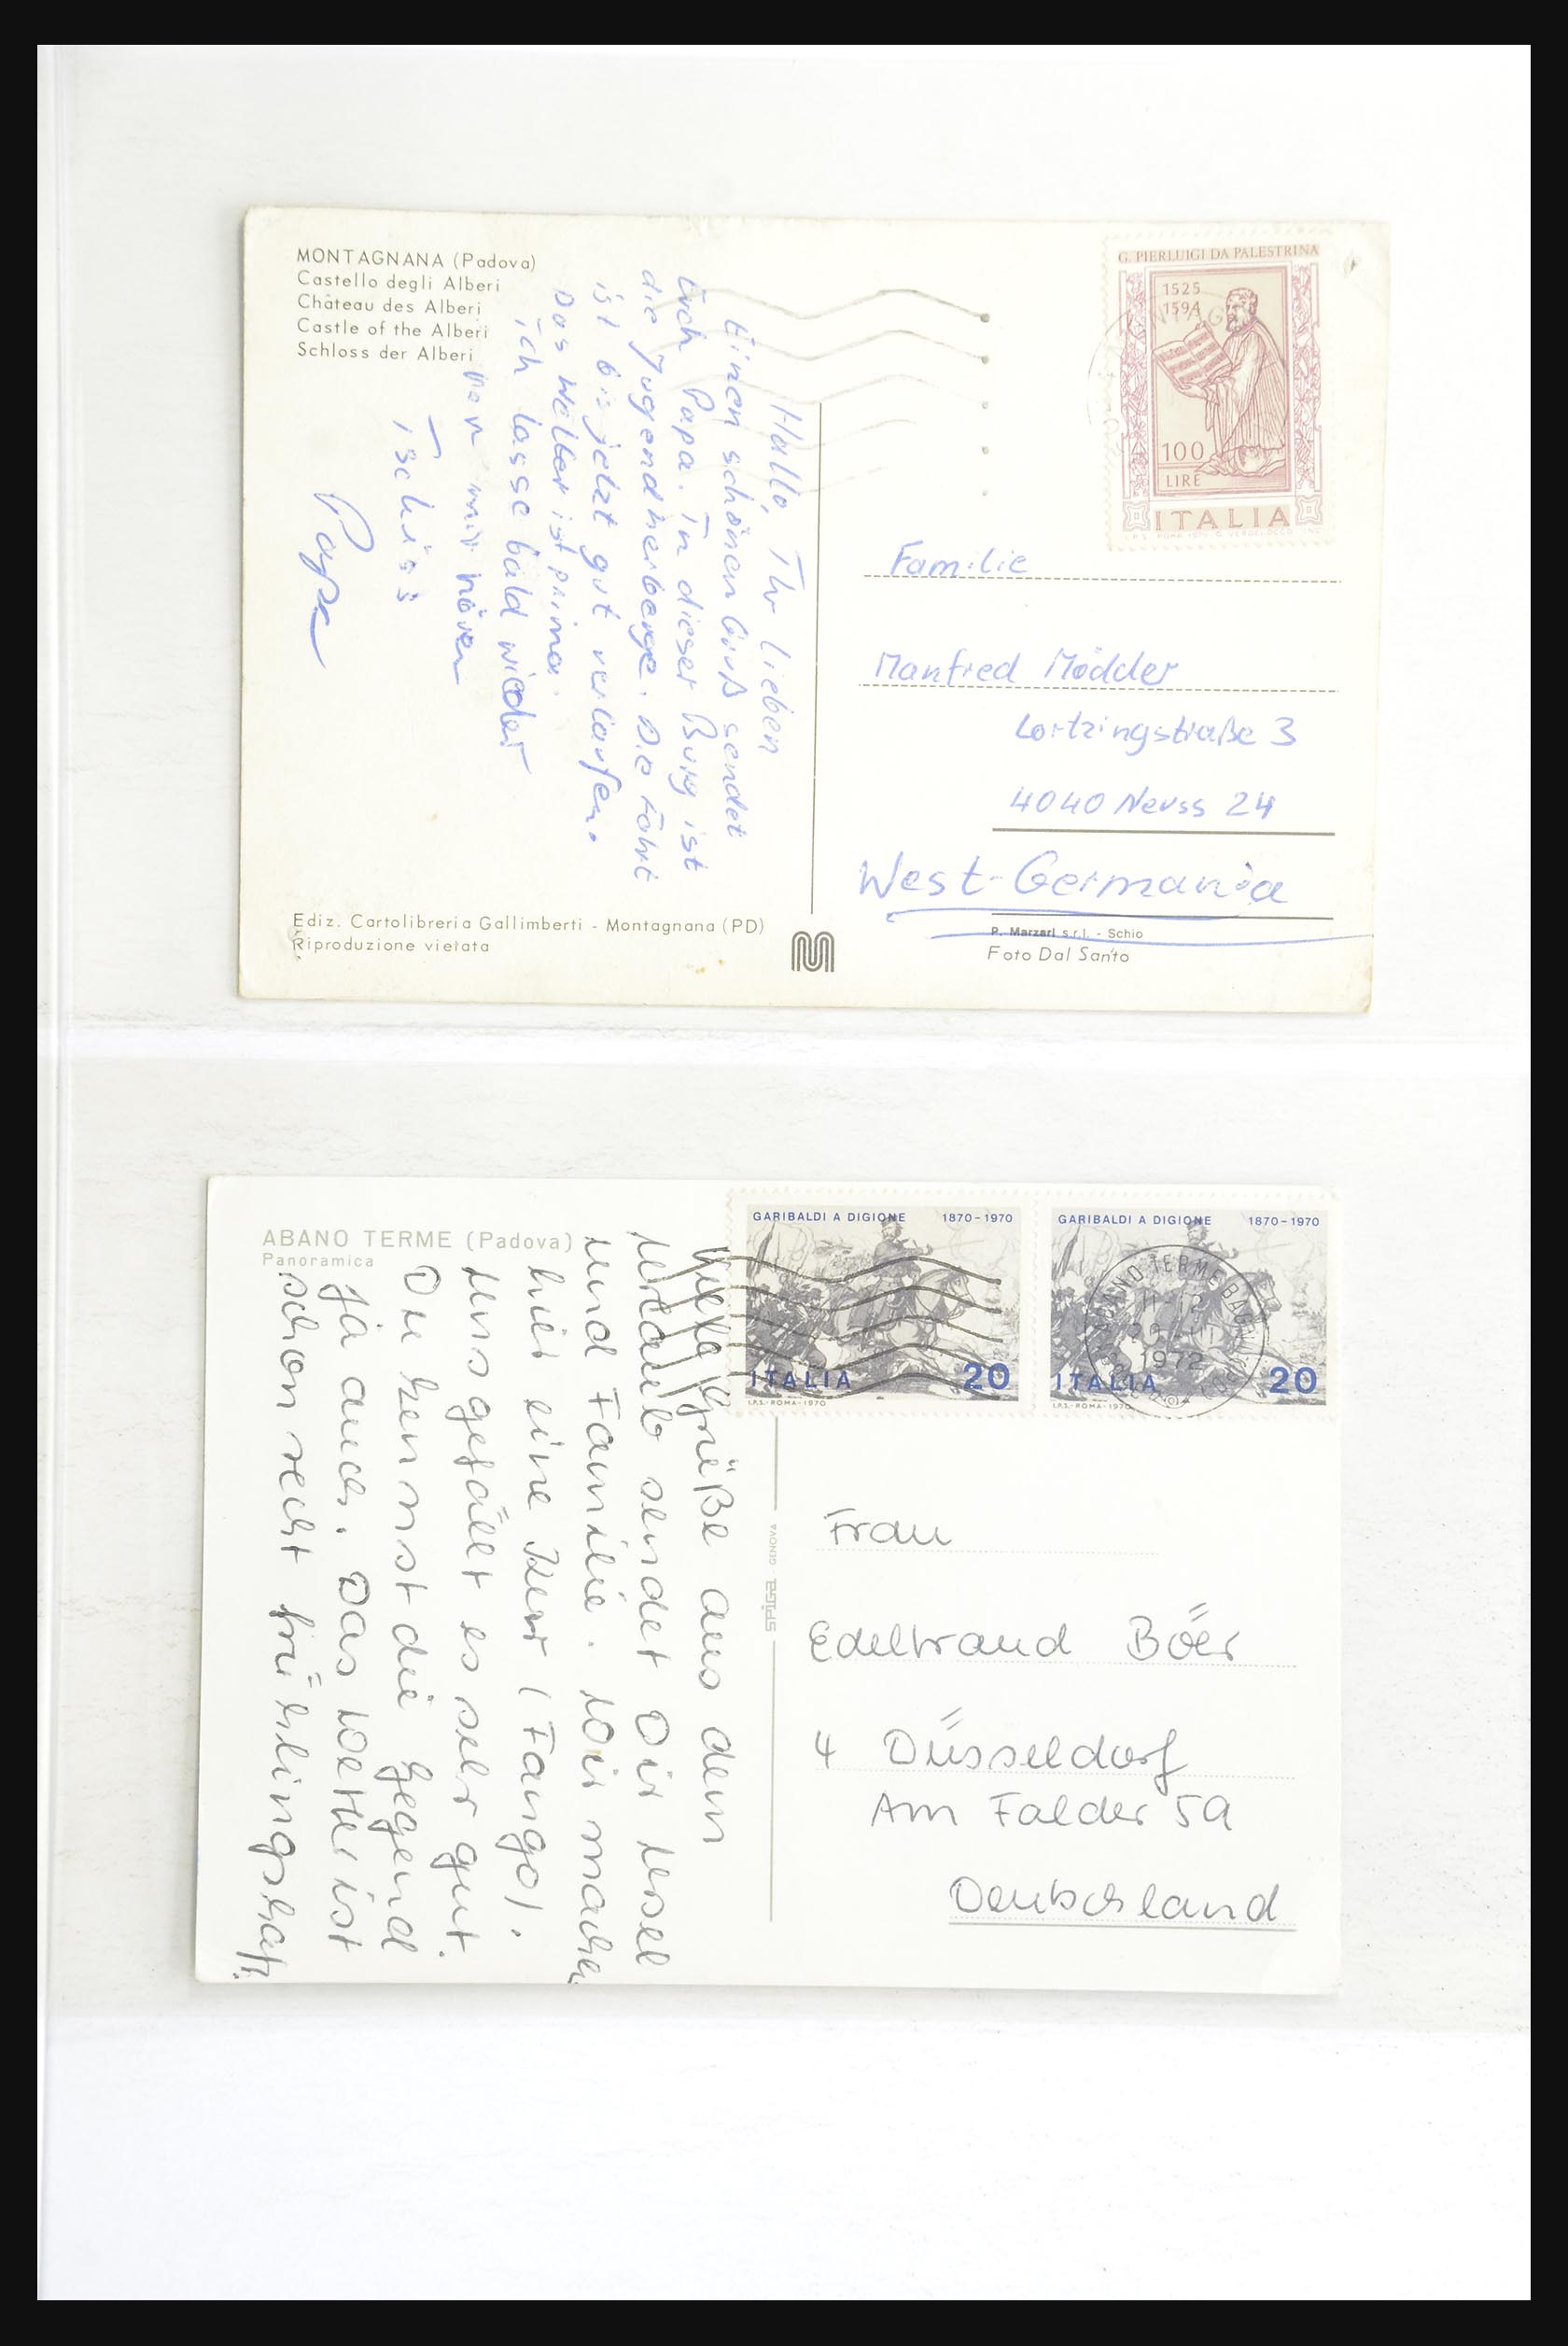 MONTAGNANA (Padova)
Castello degli Alberi
Château des Alberi
Castle of the Alberi
Schloss der Alberi
Hallo, Ihr lieben
Einen schönen Gruß sendet
Euch Papa. In dieser Burg ist
die Jugendherberge. Die Fahrt
ist bis jetzt gut verlaufen.
Das Wetter ist prima.
Ich lasse bald wieder
von mir hören
Tschüss
Papa
Ediz. Cartolibreria Gallimberti - Montagnana (PD)
Riproduzione vietata
G. PIERLUIGI DA PALESTRINA
1525
1594
100
LIRE
ITALIA
Familie
Manfred Mödder
Lortzingstraße 3
4040 Neuss 24
West-Germania
P. Marzari s.r.l. - Schio
Foto Dal Santo
ABANO TERME (Padova)
Panoramica
Viele Grüße aus dem
Urlaub sendet Dir Ursel
und Familie. Wir machen
hier eine Kur (Fango).
Uns gefällt es sehr gut.
Du kennst die Gegend
ja auch. Das Wetter ist
schon recht frühlingshaft.
GARIBALDI A DIGIONE 1870-1970
ITALIA 20
I.P.S.-ROMA-1970
GARIBALDI A DIGIONE 1870-1970
ITALIA 20
I.P.S.-ROMA-1970
ABANO TERME BAGNI
1972
SPIGA GENOVA
Frau
Edeltraud Böer
4 Düsseldorf
Am Falder 59
Deutschland